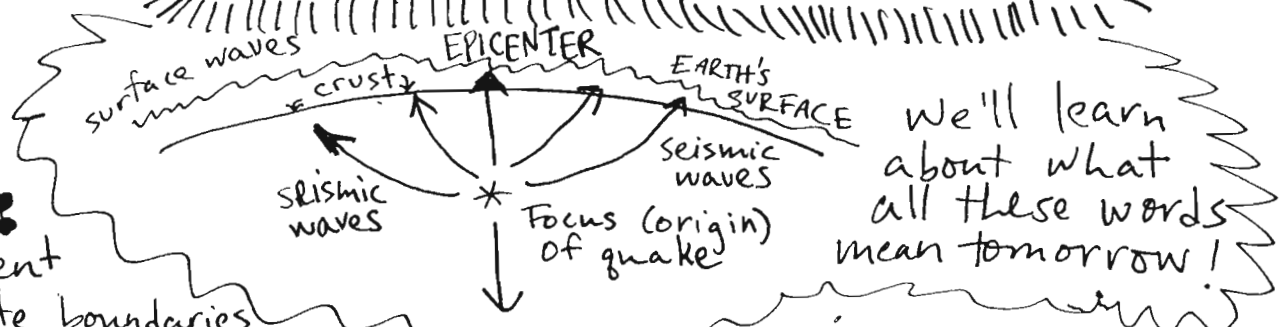 surface waves
crust
EPICENTER
EARTH'S
SURFACE
seismic
waves
seismic
waves
Focus (origin)
of quake
We'll learn
about what
all these words
mean tomorrow!
ent
te boundaries